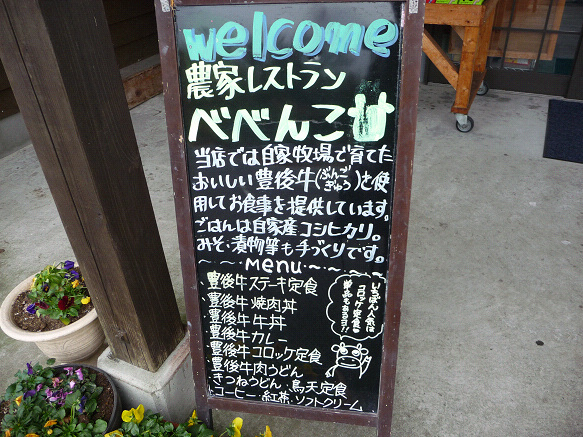 welcome
農家レストラン
べべんこ
当店では自家牧場で育てた
おいしい豊後牛(ぶんごぎゅう)を使
用してお食事を提供しています。
ごはんは自家産コシヒカリ。
みそ、漬物等も手づくりです。
～～・menu・～・～
豊後牛ステーキ定食
豊後牛焼肉丼
豊後牛牛丼
豊後牛カレー
豊後牛コロッケ定食
豊後牛肉うどん
きつねうどん、鳥天定食
コーヒー・紅茶・ソフトクリーム
いちばん人気は
コロッケ定食。
単品もあるヨ!!